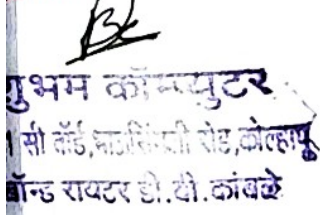 गुभम कॉम्प्युटर
१ सी वॉर्ड, रोड,कोल्हापू
बॉन्ड रायटर डी.वी.कांबळे